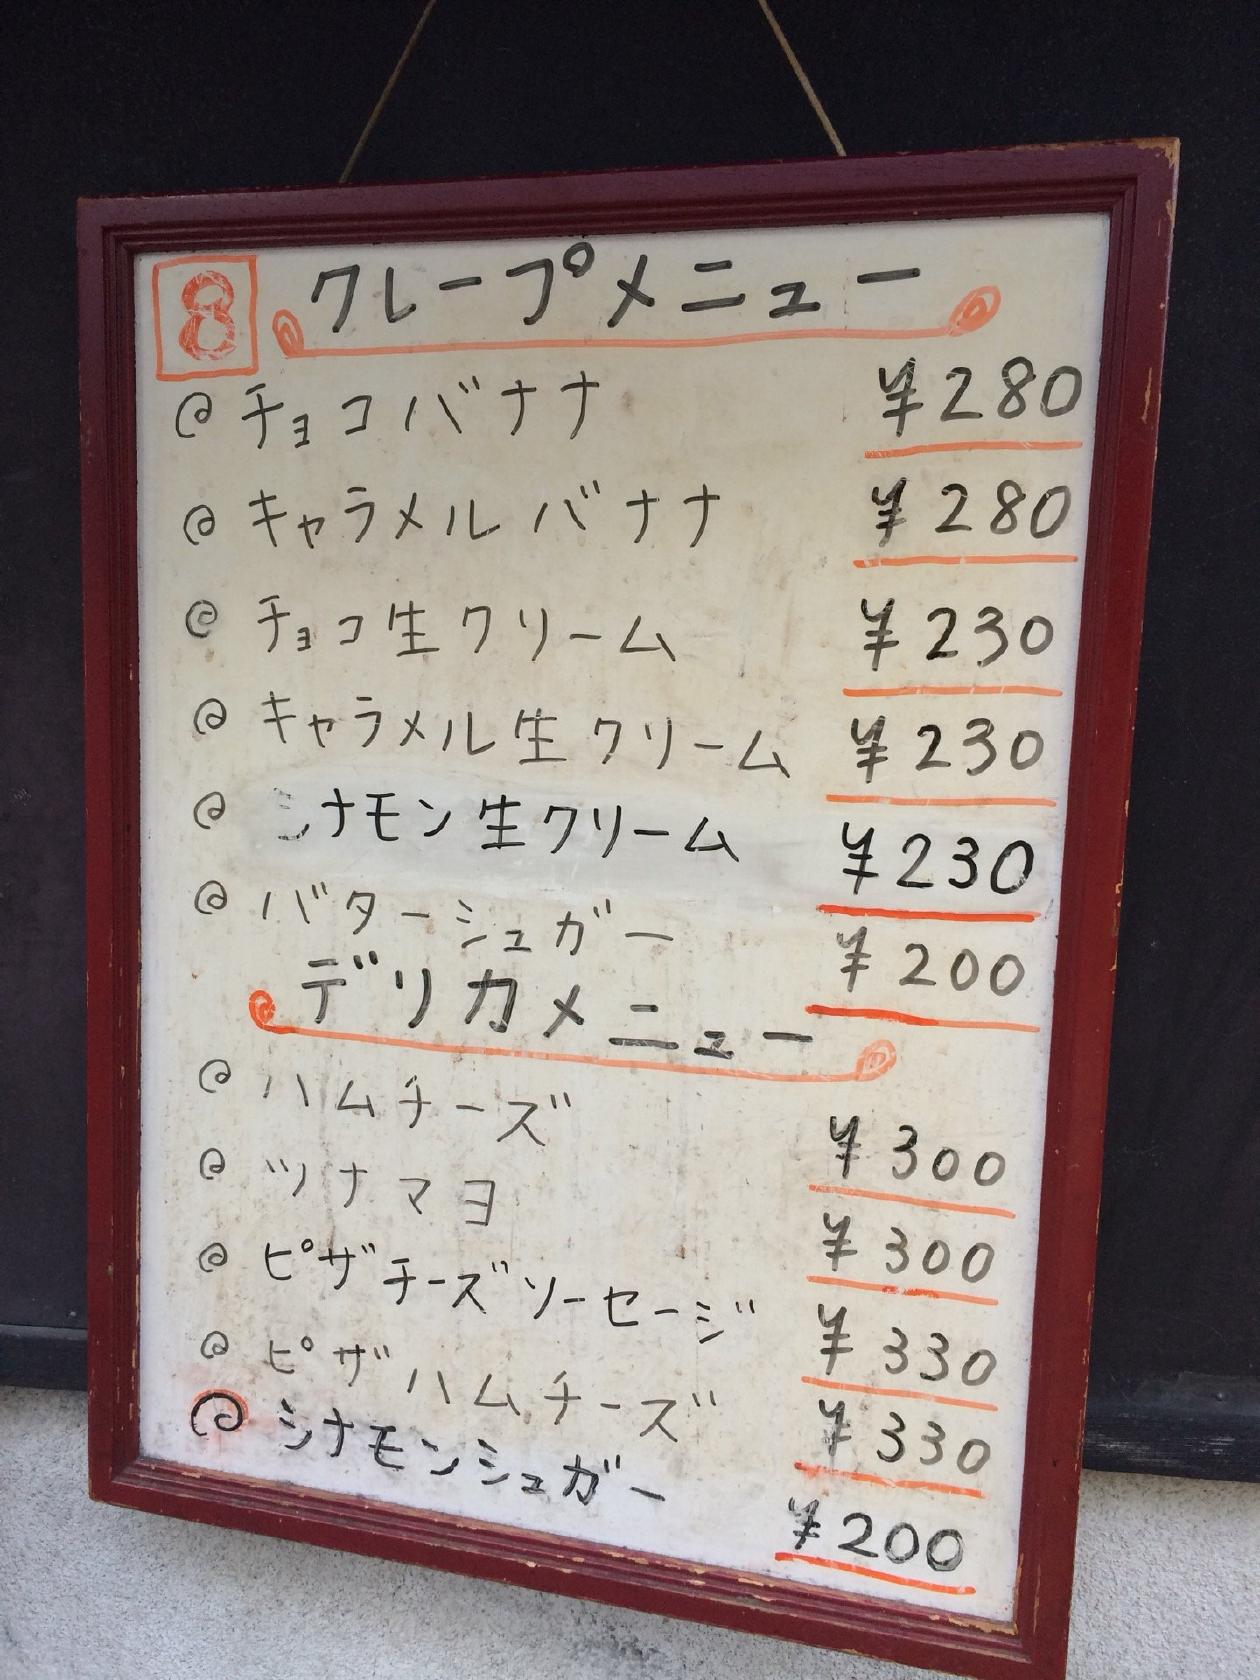 8 クレープメニュー
チョコバナナ ¥280
キャラメルバナナ ¥280
チョコ生クリーム ¥230
キャラメル生クリーム ¥230
シナモン生クリーム ¥230
バターシュガー ¥200
デリカメニュー
ハムチーズ ¥300
ツナマヨ ¥300
ピザチーズソーセージ ¥330
ピザハムチーズ ¥330
シナモンシュガー ¥200